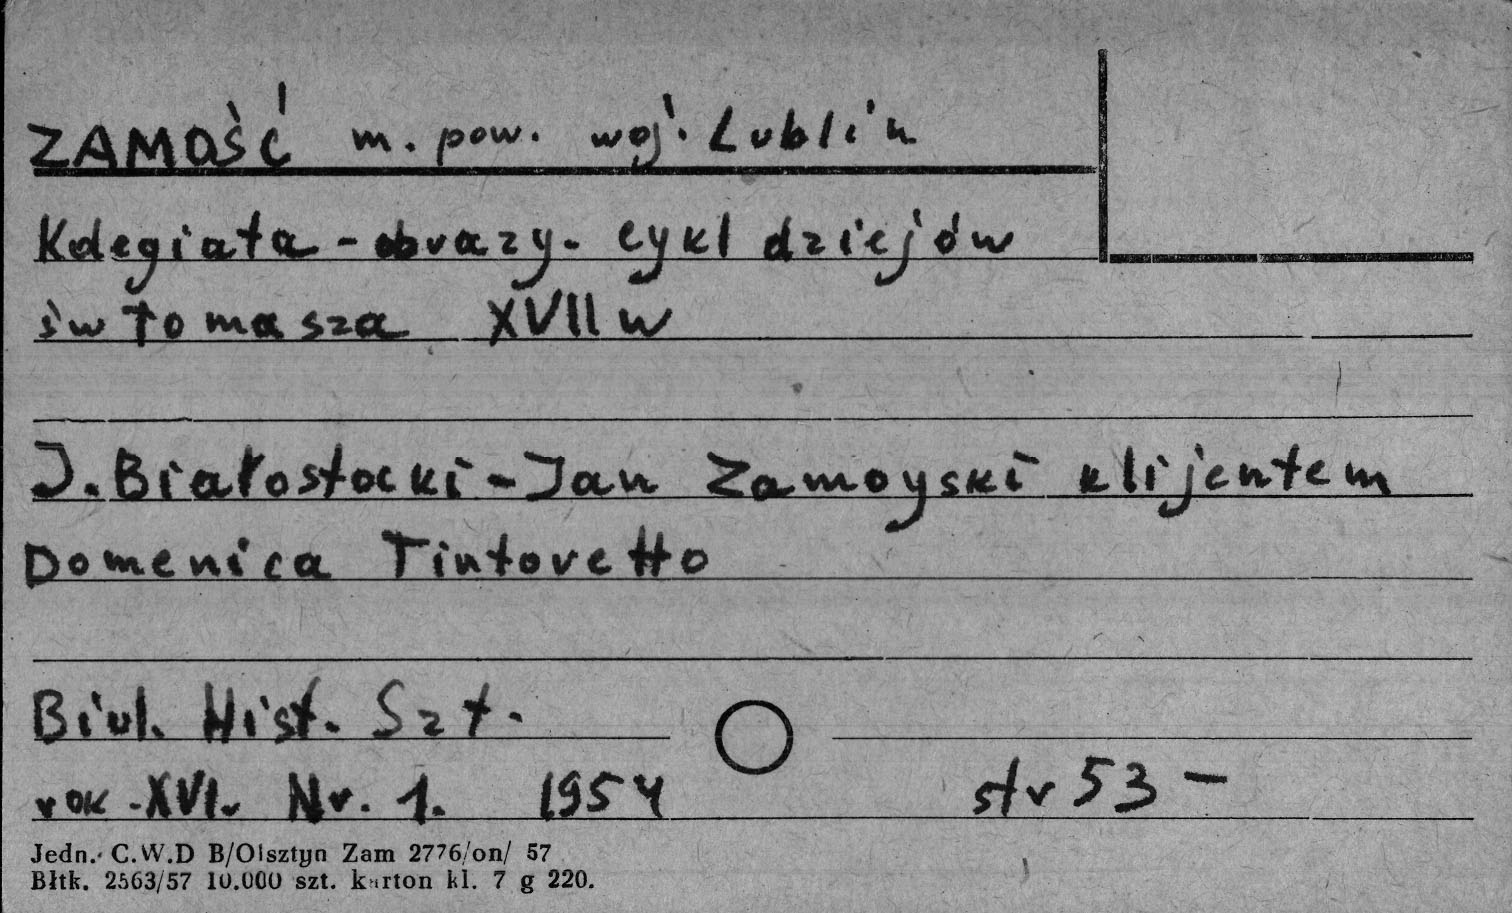 ZAMOŚĆ m. pow. woj. Lublin
Kolegiata - obrazy - cykl dziejów
św Tomasza XVII w
J. Białostocki - Jan Zamoyski klijentem
Domenica Tintoretto
Biul. Hist. Szt.
rok - XVI. Nr. 1. 1954 str 53 -
Jedn. C.W.D B/Olsztyn Zam 2776/on/ 57
Błtk. 2563/57 10.000 szt. karton kl. 7 g 220.